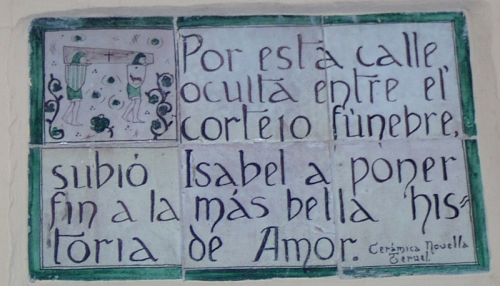 Por esta calle,
oculta entre el
cortejo fúnebre,
subió Isabel a poner
fin a la más bella his=
toria de Amor.
Cerámica Novella
Teruel